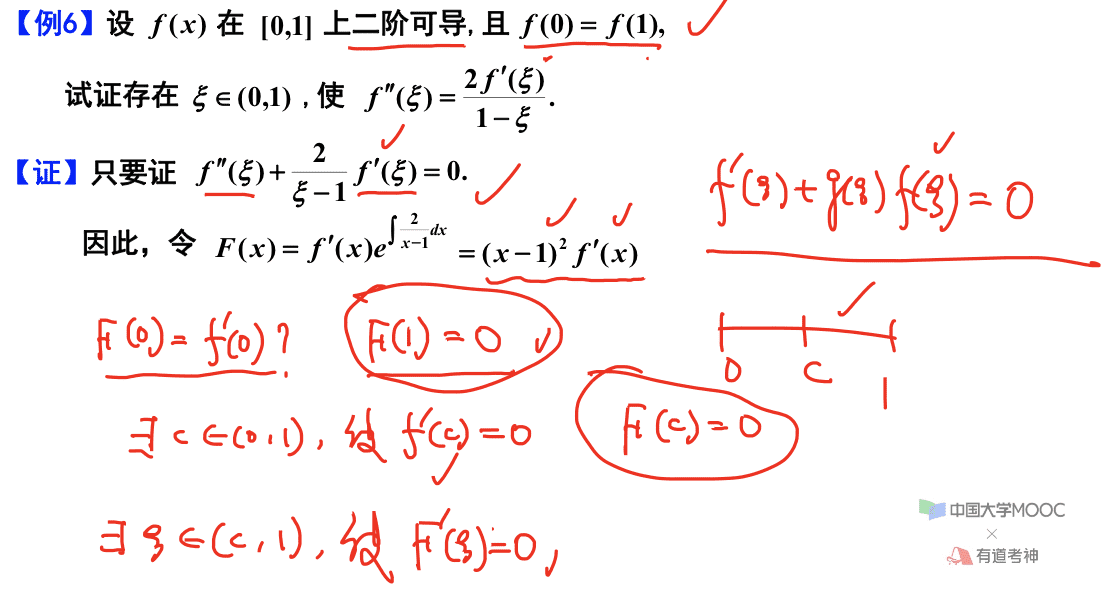 【例6】设 f(x) 在 [0,1] 上二阶可导, 且 f(0) = f(1),
试证存在 ξ∈(0,1) , 使 f″(ξ) = 2f′(ξ)/(1−ξ).
【证】只要证 f″(ξ) + 2/(ξ−1) f′(ξ) = 0.
f′(ξ) + g(ξ) f(ξ) = 0
因此，令 F(x) = f′(x)e^{∫ 2/(x−1) dx} = (x−1)² f′(x)
F(0) = f′(0) ?
F(1) = 0
0 C 1
∃ c ∈(0,1), 使 f′(c) = 0
F(c) = 0
∃ ξ ∈(c,1), 使 F′(ξ) = 0,
中国大学MOOC
×
有道考神